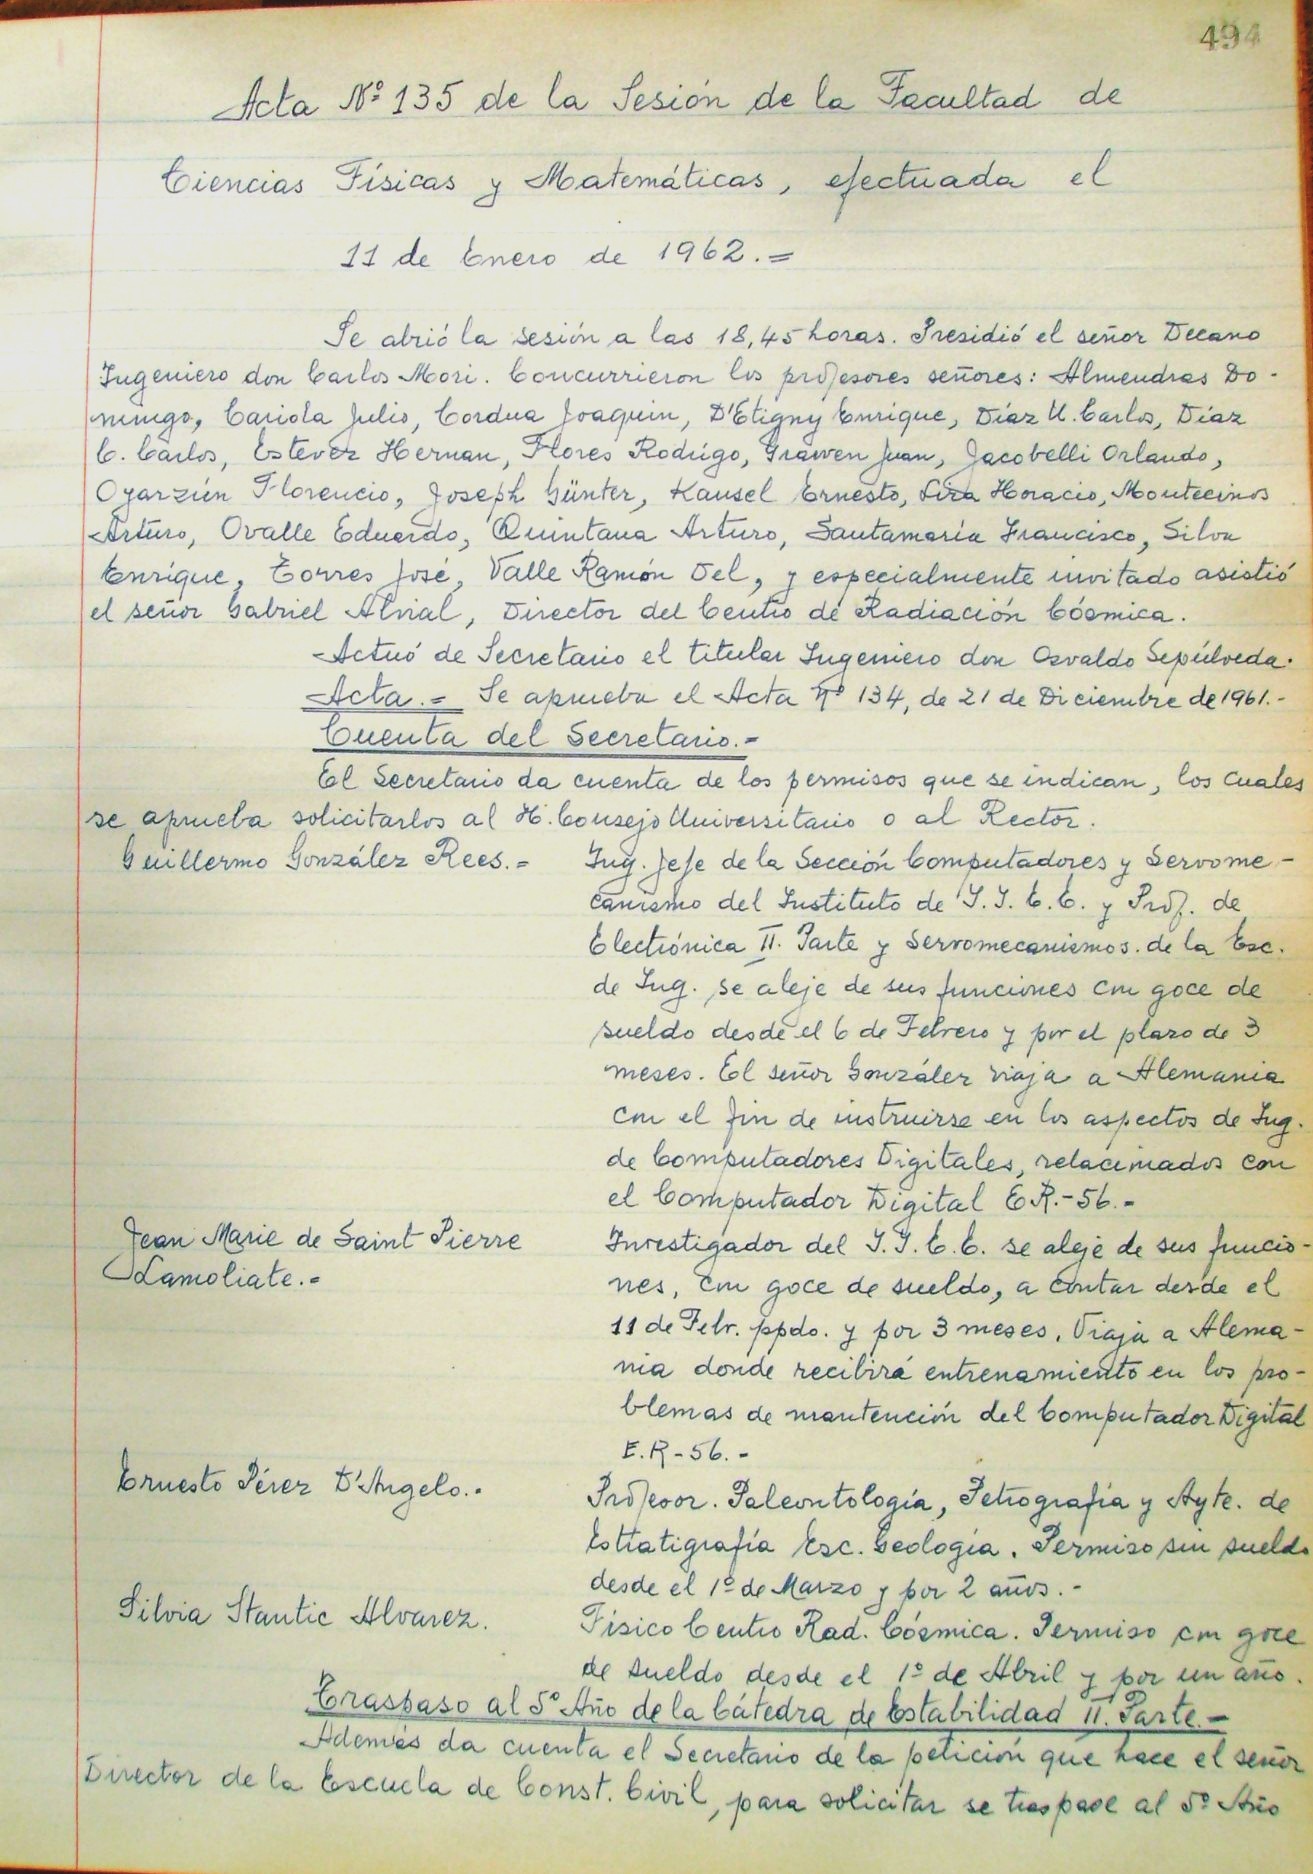 494
Acta Nº 135 de la Sesión de la Facultad de
Ciencias Físicas y Matemáticas, efectuada el
11 de Enero de 1962.=
Se abrió la sesión a las 18,45 horas. Presidió el señor Decano
Ingeniero don Carlos Mori. Concurrieron los profesores señores: Almendras Do-
mingo, Cariola Julio, Cordua Joaquín, D'Etigny Enrique, Díaz U. Carlos, Díaz
C. Carlos, Estevez Hernan, Flores Rodrigo, Grawen Juan, Jacobelli Orlando,
Oyarzún Florencio, Joseph Günter, Kausel Ernesto, Lira Horacio, Montecinos
Arturo, Ovalle Eduardo, Quintana Arturo, Santamaría Francisco, Silva
Enrique, Torres José, Valle Ramón Del, y especialmente invitado asistió
el señor Gabriel Alvial, Director del Centro de Radiación Cósmica.
Actuó de Secretario el titular Ingeniero don Osvaldo Sepúlveda.
Acta.= Se aprueba el Acta Nº 134, de 21 de Diciembre de 1961.-
Cuenta del Secretario.-
El Secretario da cuenta de los permisos que se indican, los cuales
se aprueba solicitarlos al H. Consejo Universitario o al Rector.
Guillermo González Rees.- Ing. Jefe de la Sección Computadores y Servome-
canismo del Instituto de I.I.E.E. y Prof. de
Electrónica II. Parte y Servomecanismos. de la Esc.
de Ing. se aleje de sus funciones con goce de
sueldo desde el 6 de Febrero y por el plazo de 3
meses. El señor González viaja a Alemania
con el fin de instruirse en los aspectos de Ing.
de Computadores Digitales, relacionados con
el Computador Digital E R.-56.-
Jean Marie de Saint Pierre Investigador del I.I.E.E. se aleje de sus funcio-
Lamoliate.- nes, con goce de sueldo, a contar desde el
11 de Febr. ppdo. y por 3 meses. Viaja a Alema-
nia donde recibirá entrenamiento en los pro-
blemas de mantención del Computador Digital
E.R-56.-
Ernesto Pérez D'Angelo.- Profesor. Paleontología, Petrografía y Ayte. de
Estratigrafía Esc. Geología. Permiso sin sueldo
desde el 1º de Marzo y por 2 años.-
Silvia Stantic Alvarez. Físico Centro Rad. Cósmica. Permiso con goce
de sueldo desde el 1º de Abril y por un año.
Trasbaso al 5º Año de la Cátedra de Estabilidad II. Parte.-
Además da cuenta el Secretario de la petición que hace el señor
Director de la Escuela de Const. Civil, para solicitar se traspase al 5º Año